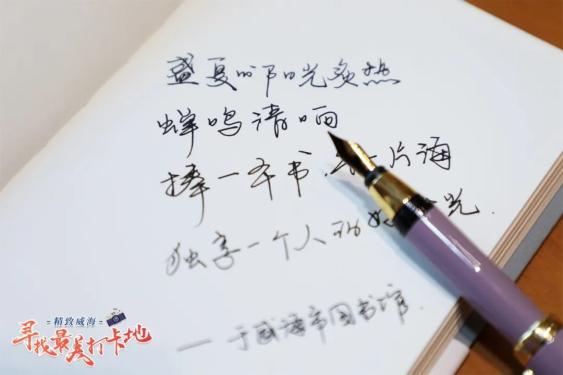 盛夏的阳光炙热
蝉鸣清响
捧一本书.
一片海
独享一个人的
光.
—于威海市图书馆.
精致威海
寻找最美打卡地